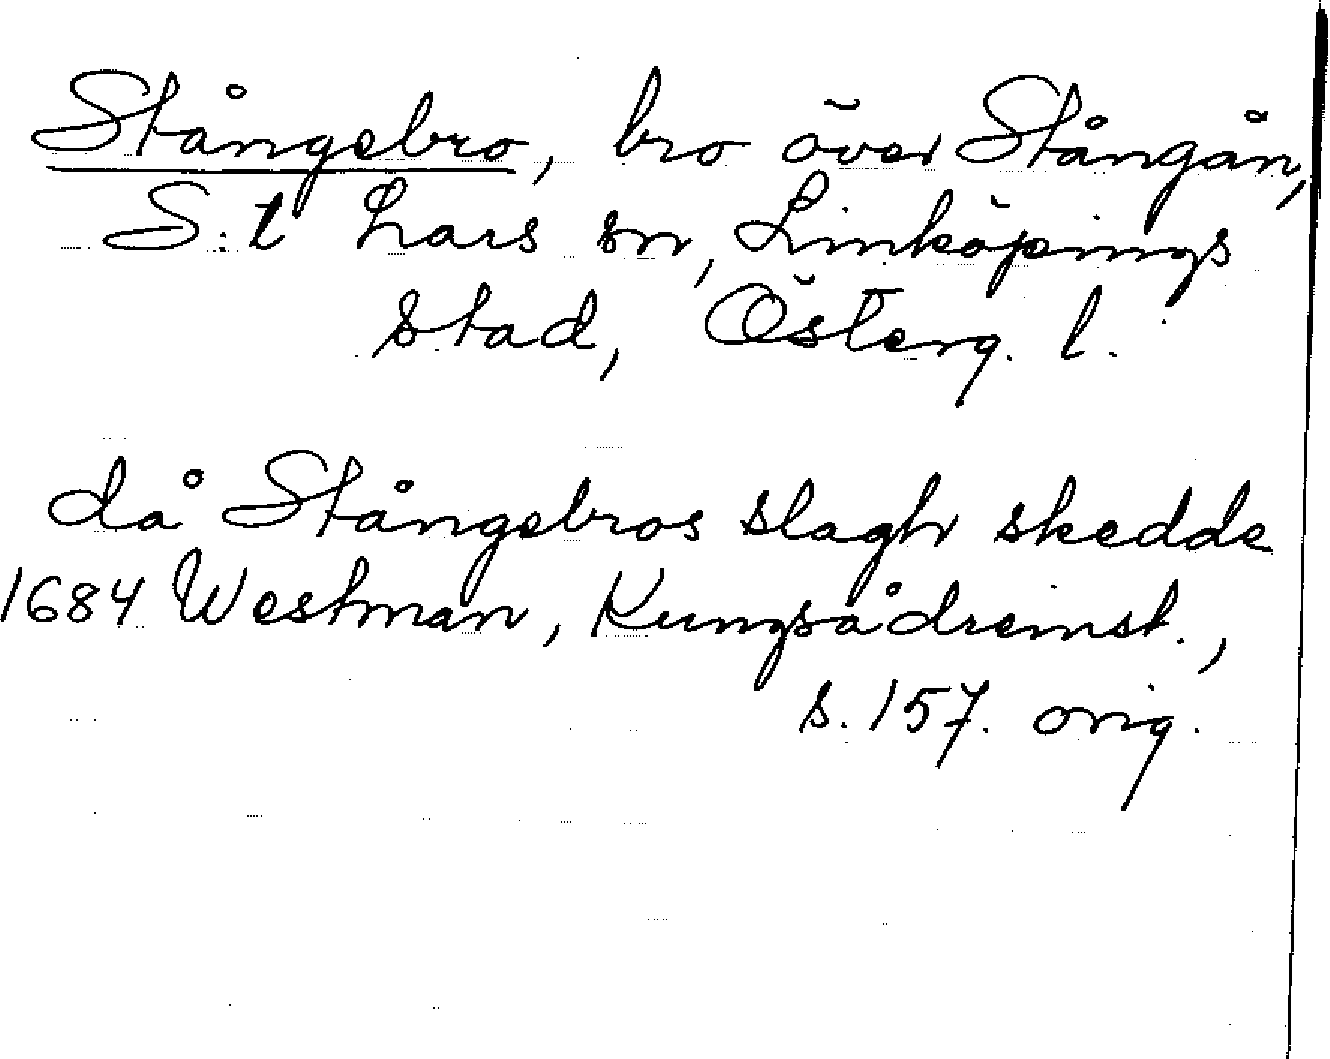 Stångebro, bro över Stångån,
S:t Lars sn, Linköpings
stad, Österg. l.
då Stångebros slagh skedde
1684 Westman, Kungsådreinst.,
s. 157. orig.